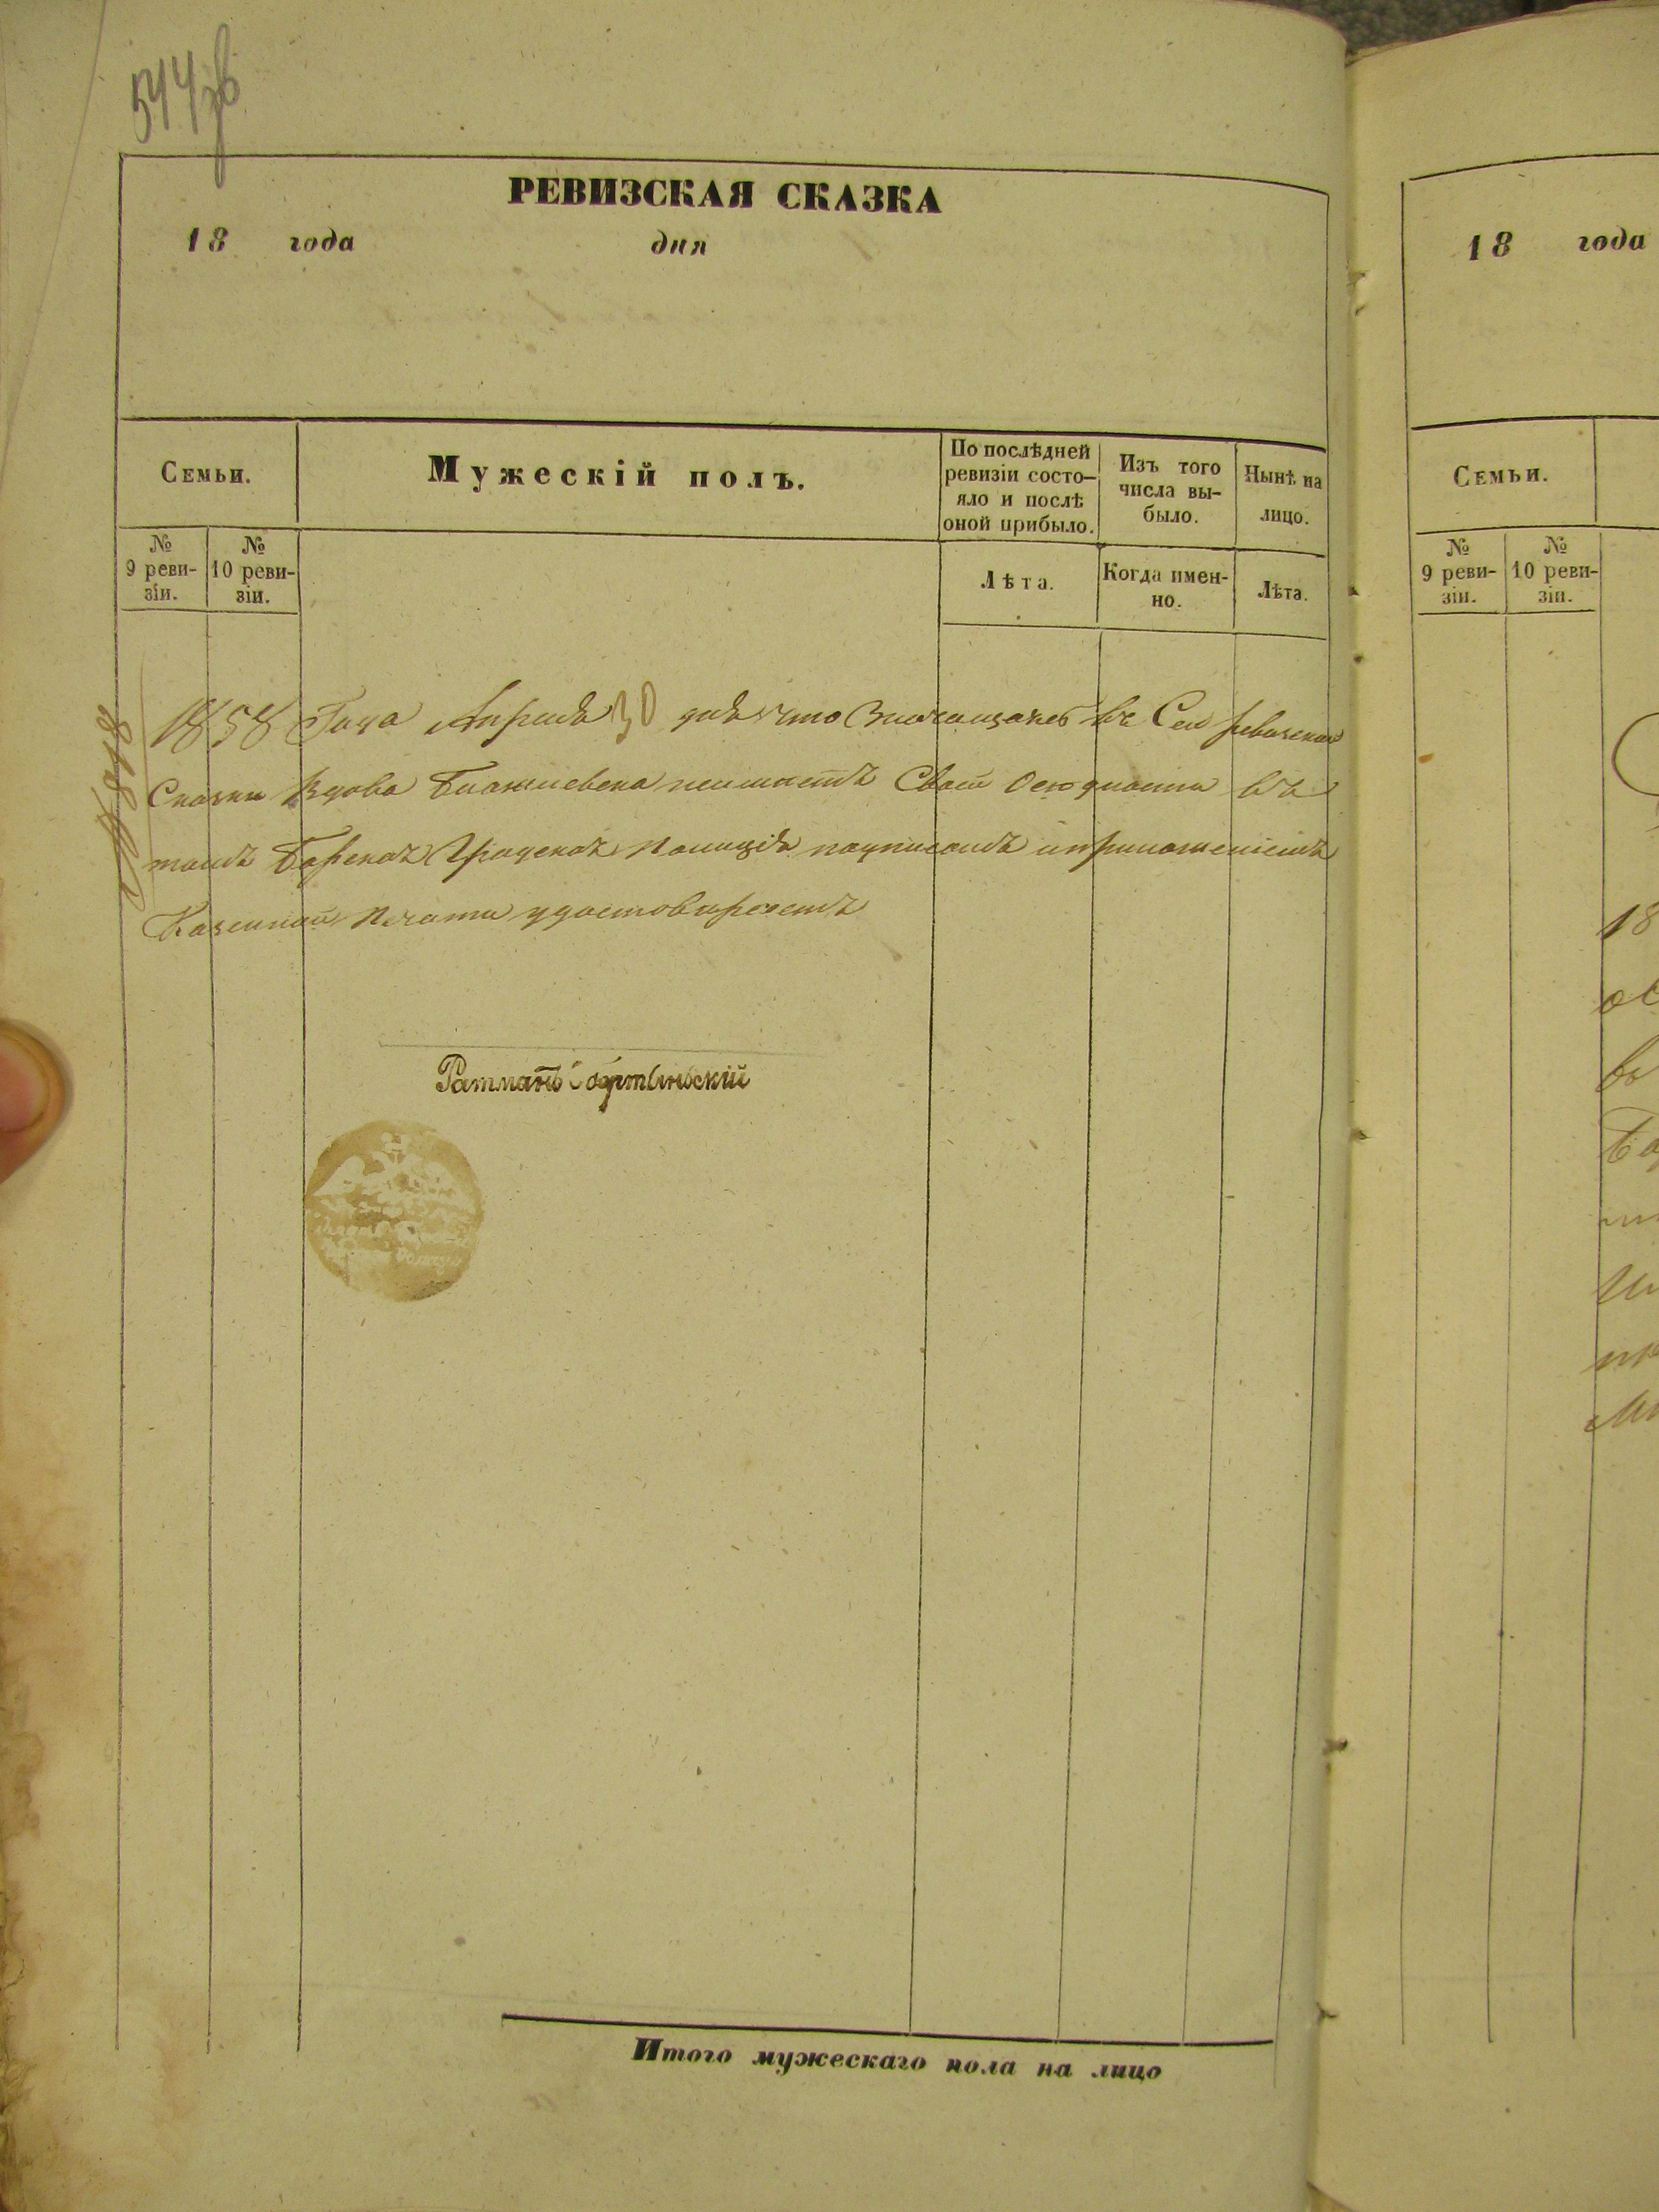 544 об
РЕВИЗСКАЯ СКАЗКА
18 года дня
Семьи.
Мужескій полъ.
По послѣдней
ревизіи состо-
яло и послѣ
оной прибыло.
Изъ того
числа вы-
было.
Нынѣ на
лицо.
№
9 реви-
зіи.
№
10 реви-
зіи.
Лѣта.
Когда имен-
но.
Лѣта.
1858 Года Апрѣля 30 дня что Значащаяся въ Сей ревизской
Сказки Вдова неимѣетъ Своей Оседлости въ
томъ Градская Полиція подписомъ и приложеніемъ
Казенной Печати удостовѣряетъ
Ратманъ
Итого мужескаго пола на лицо
18 года
Семьи.
№
9 реви-
зіи.
№
10 реви-
зіи.
18